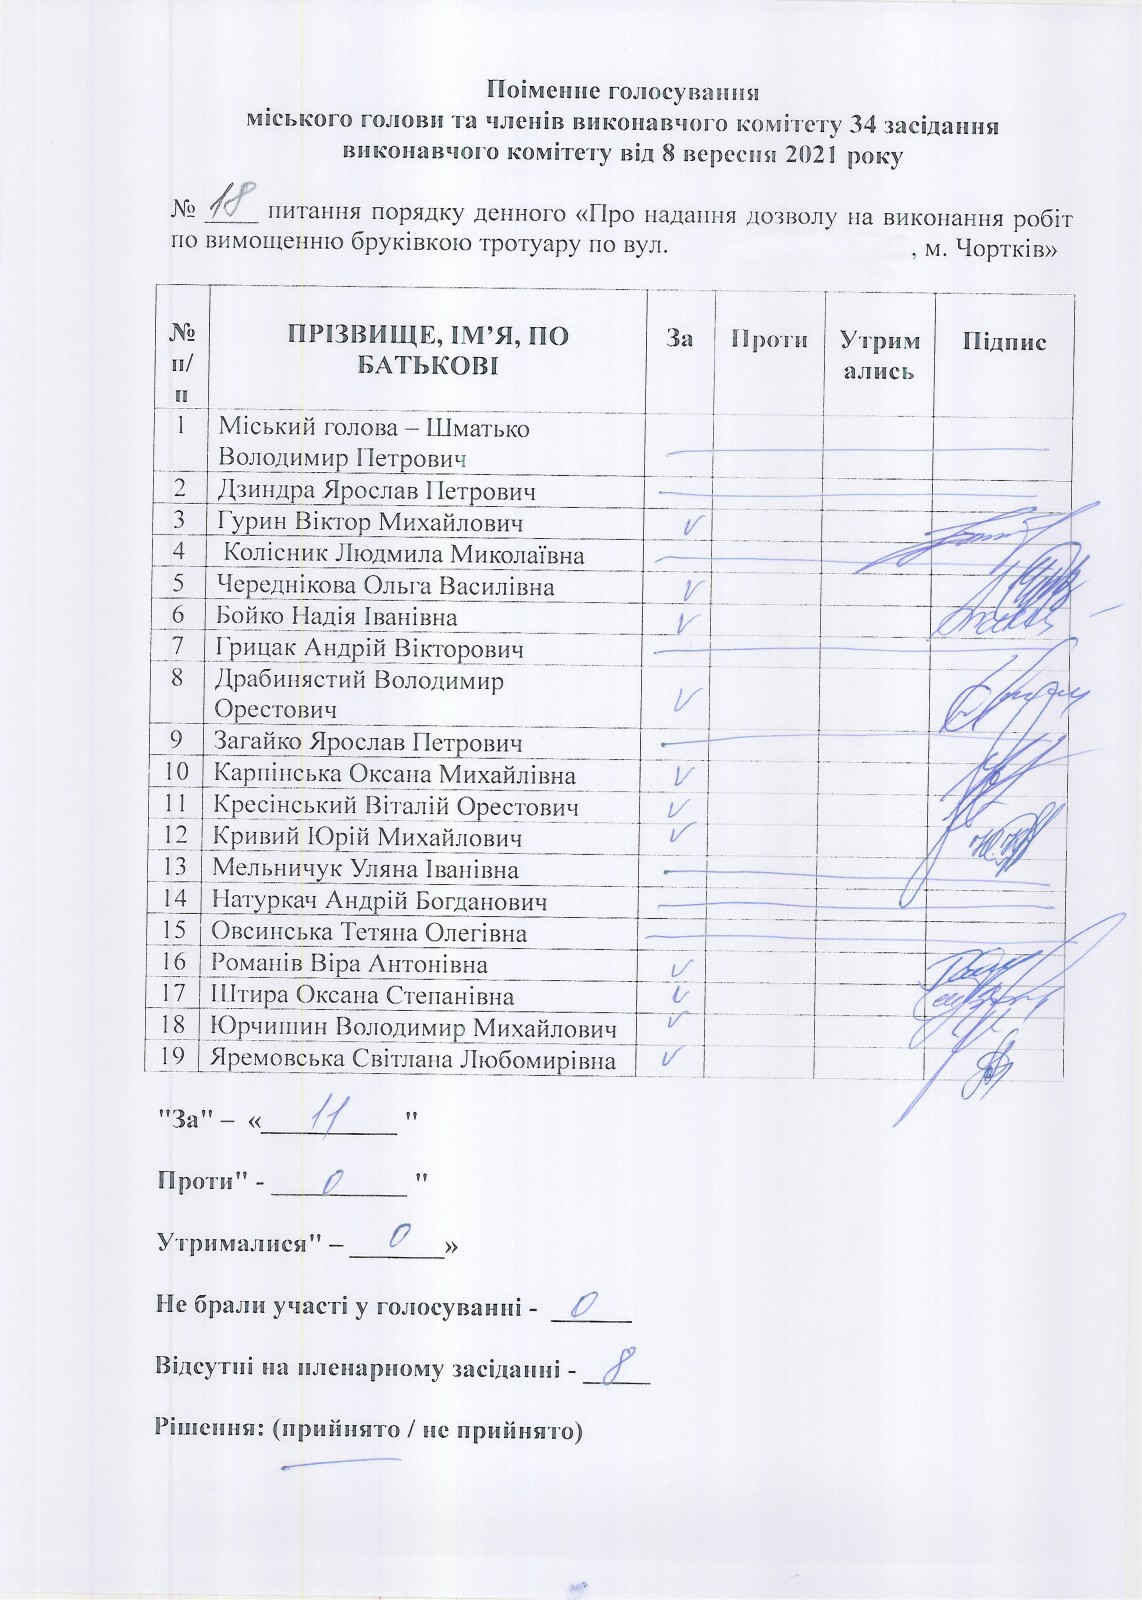 Поіменне голосування
міського голови та членів виконавчого комітету 34 засідання
виконавчого комітету від 8 вересня 2021 року
№ 18 питання порядку денного «Про надання дозволу на виконання робіт
по вимощенню бруківкою тротуару по вул. , м. Чортків»
№ п/п ПРІЗВИЩЕ, ІМ’Я, ПО БАТЬКОВІ За Проти Утримались Підпис
1 Міський голова – Шматько
Володимир Петрович
2 Дзиндра Ярослав Петрович
3 Гурин Віктор Михайлович
4 Колісник Людмила Миколаївна
5 Череднікова Ольга Василівна
6 Бойко Надія Іванівна
7 Грицак Андрій Вікторович
8 Драбинястий Володимир
Орестович
9 Загайко Ярослав Петрович
10 Карпінська Оксана Михайлівна
11 Кресінський Віталій Орестович
12 Кривий Юрій Михайлович
13 Мельничук Уляна Іванівна
14 Натуркач Андрій Богданович
15 Овсинська Тетяна Олегівна
16 Романів Віра Антонівна
17 Штира Оксана Степанівна
18 Юрчишин Володимир Михайлович
19 Яремовська Світлана Любомирівна
"За" – «__11__ "
Проти" - __0__ "
Утрималися" – __0__»
Не брали участі у голосуванні - 0
Відсутні на пленарному засіданні - 8
Рішення: (прийнято / не прийнято)